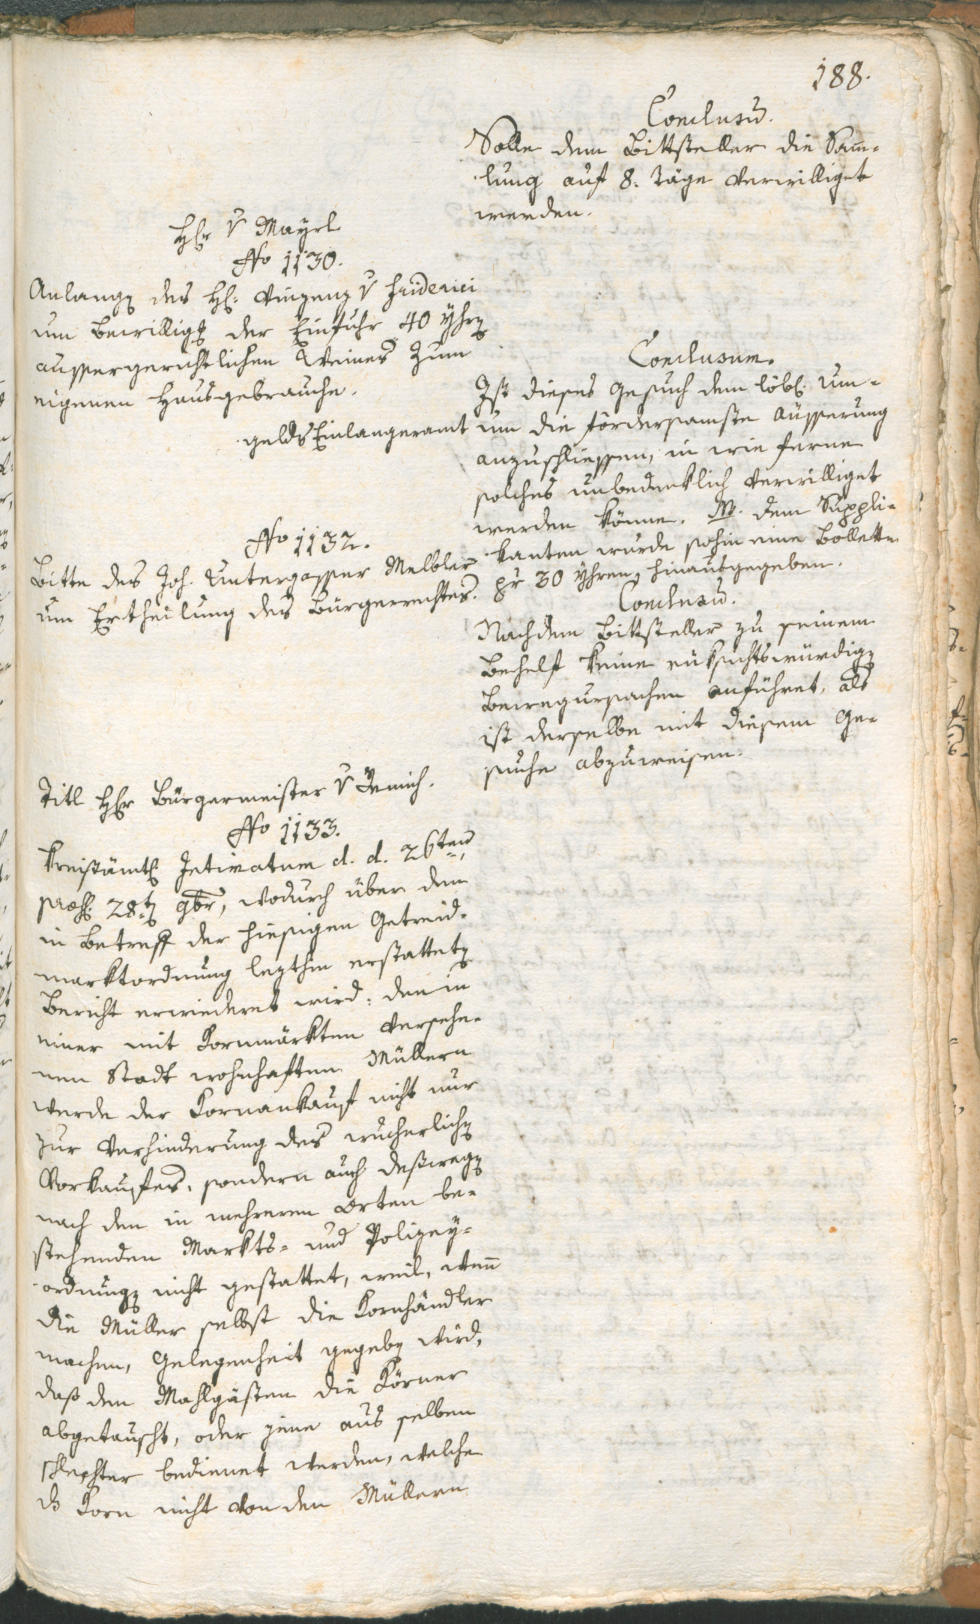 188.
Conclusum.
Solle dem Bittsteller die Sam̄-
lung auf 8. Täge verwilliget
werden.
Hr v Mayrl
No 1130.
Anlangen des H: Vinzenz v Friderici
um Bewilligg der Einfuhr 40 Yhrn
aussergerichtlichen Weines zum
eigenen Hausgebrauche.
Conclusum.
Ist dieses Gesuch dem löbl. Um-
geldsEinlangeramt um die fördersamste Äusserung
anzuschliessen, in wie ferne
solches unbedenklich verwilliget
werden könne. NB. dem Suppli-
kanten wurde sohin eine Bollette
pr 30 Yhren hinausgegeben.
No 1132.
Bitte des Joh. Untergasser Melbler
um Ertheilung des Bürgerrechtes.
Conclusum.
Nachdem Bittsteller zu seinem
Behelf keine rüksichtswürdign
Bewegursachen anführet, als
ist derselbe mit diesem Ge-
suche abzuweisen.
Titl Hr Bürgermeister v
No 1133.
Kreisämtl Intimatum d. d. 26ten
praes. 28tn 9br, wodurch über den
in Betreff der hiesigen Getreid-
marktordnung lezthin erstatteten
Bericht erwiedert wird: den in
einer mit Kornmärkten versehe-
nen Stadt wohnhaften Müllern
werde der Kornankauf nicht nur
zur Verhinderung des wucherlichn
Vorkaufes, sondern auch deßwegn
nach den in mehreren Orten be-
stehenden Markts- und Polizey-
ordnungn nicht gestattet, weil, wen̄
die Müller selbst die Kornhändler
machen, Gelegenheit gegebn wird,
daß den Mahlgästen die Körner
abgetauscht, oder jene aus selben
schlechter bedienet werden, welche
ds Korn nicht von den Müllern